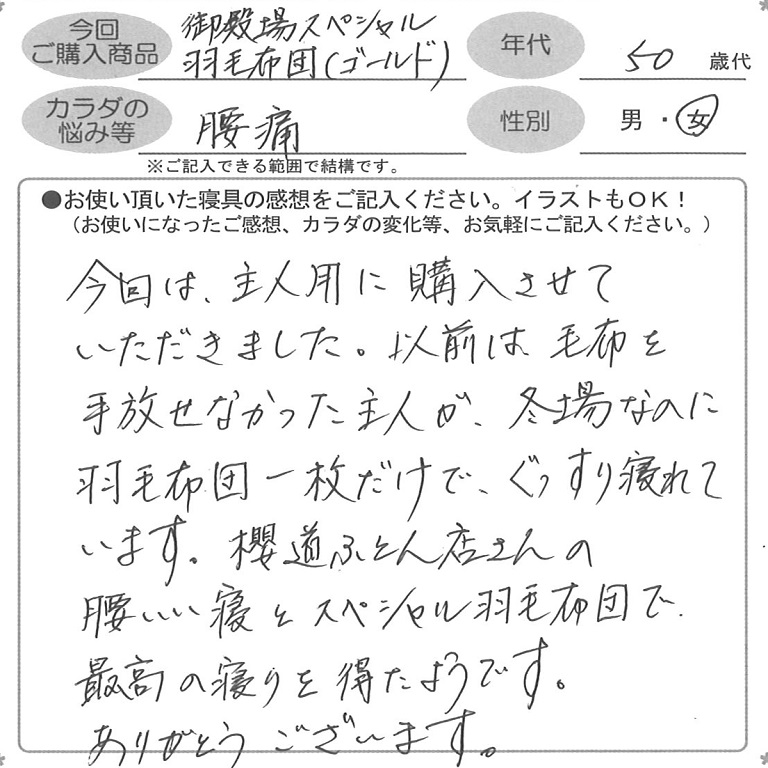 今回
ご購入商品
御殿場スペシャル
羽毛布団(ゴールド)
年代
50 歳代
カラダの
悩み等
腰痛
性別
男・女
※ご記入できる範囲で結構です。
●お使い頂いた寝具の感想をご記入ください。イラストもOK!
(お使いになったご感想、カラダの変化等、お気軽にご記入ください。)
今回は、主人用に購入させて
いただきました。以前は毛布を
手放せなかった主人が、冬場なのに
羽毛布団一枚だけで、ぐっすり寝れて
います。櫻道ふとん店さんの
腰いい寝とスペシャル羽毛布団で
最高の寝りを得たようです。
ありがとうございます。